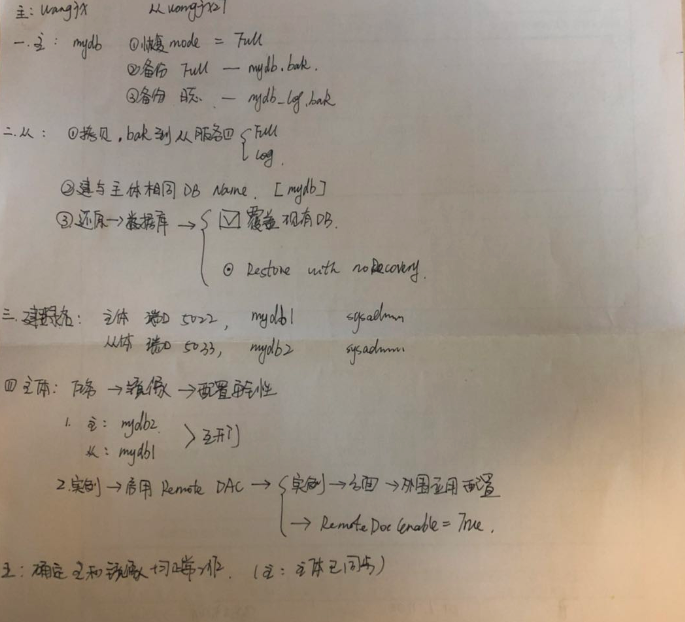 主: wangjx 从 wangjx21
一.主: mydb ①恢复mode = Full
②备份 Full — mydb.bak.
③备份 日志. — mydb_log.bak
二.从: ①拷贝.bak到从服务四 { Full
Log.
②建与主体相同 DB Name. [mydb]
③还原→数据库 → { ☑ 覆盖现有DB.
⊙ Restore with noRecovery.
三. 登录名: 主体 端口 5022, mydb1 sysadmin
从体 端口 5033, mydb2 sysadmin
四 主体: 任务 → 镜像 → 配置安全性
1. 主: mydb2
从: mydb1 > 互开门
2.实例 → 启用 Remote DAC → { 实例 → 方面 → 外围应用配置
→ RemoteDacEnable = True.
主: 确定 主和镜像 均正常工作. (主: 主体已同步)